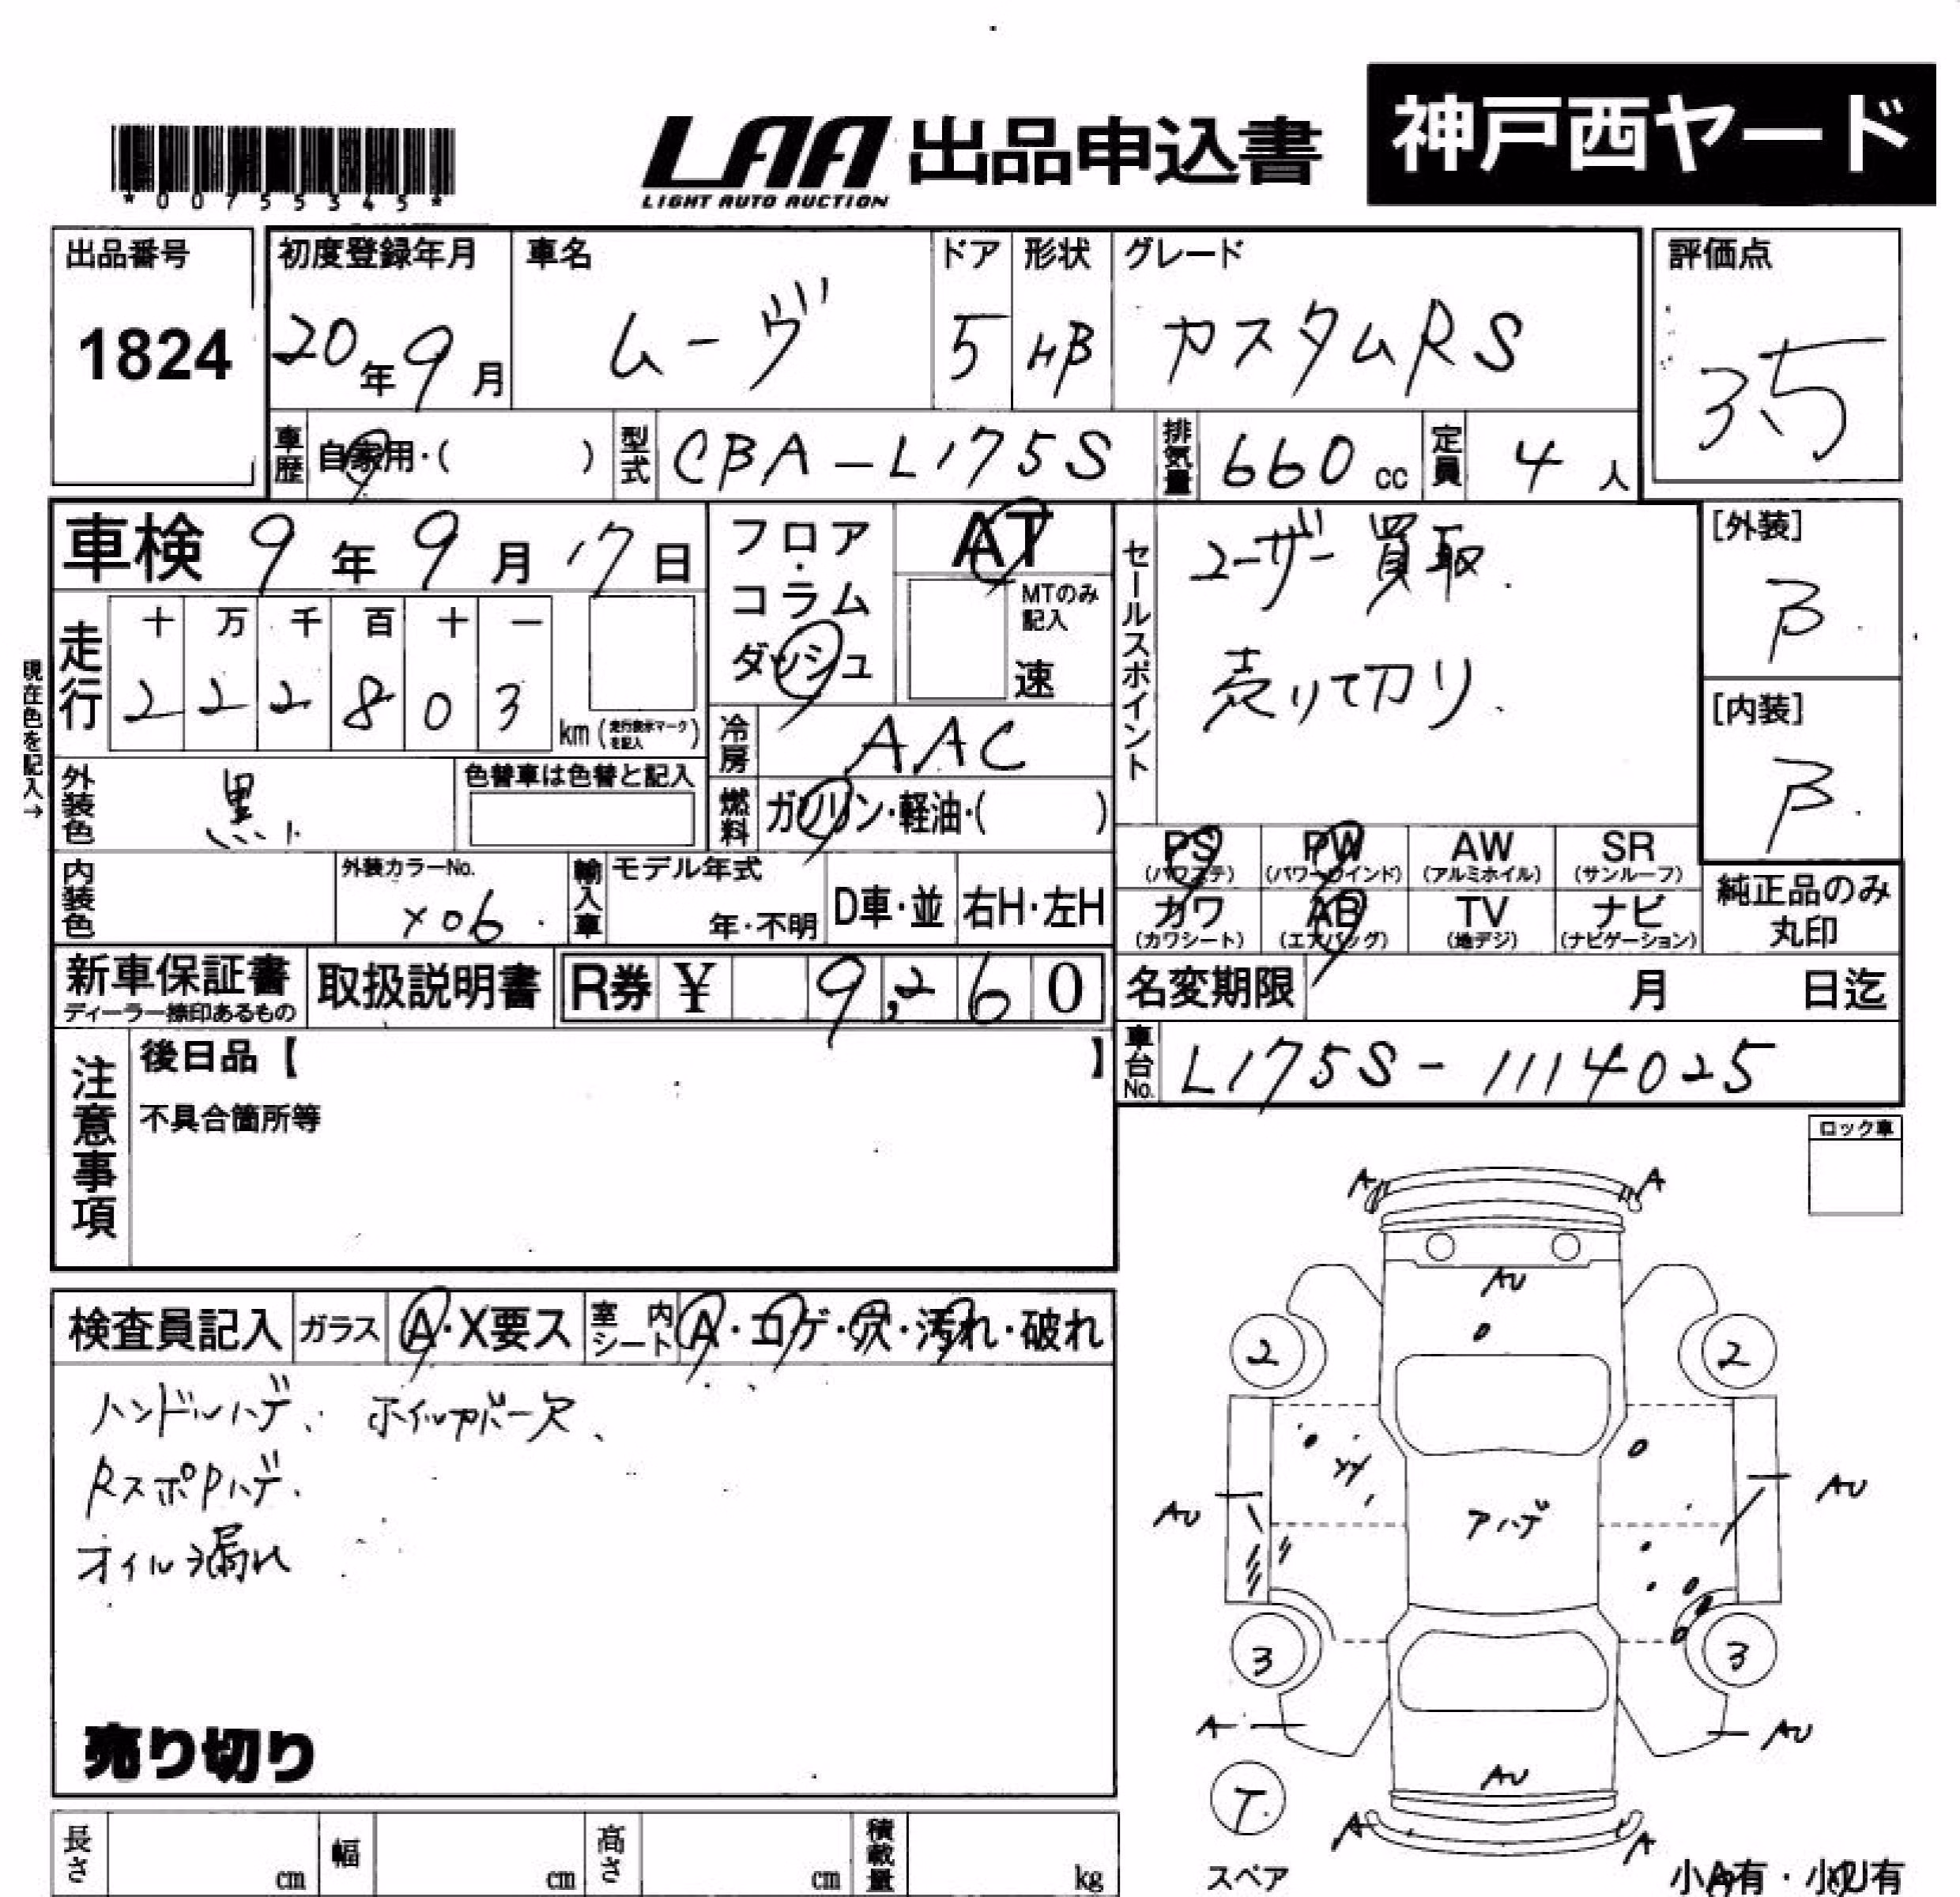 神戸西ヤード
LAA 出品申込書
LIGHT AUTO AUCTION
*00755345*
出品番号
1824
初度登録年月
20年9月
車名
ムーヴ
ドア
5
形状
HB
グレード
カスタムRS
評価点
35
車歴
自家用・( )
型式
CBA-L175S
排気量
660cc
定員
4人
車検 9年9月17日
フロア・コラム
ダッシュ
AT
MTのみ記入
速
セールスポイント
ユーザー買取.
売りて切り.
[外装]
B
[内装]
B
現在色を記入→
走行
十 万 千 百 十 一
2 2 2 8 0 3
km(走行表示マークを記入)
冷房
AAC
外装色
黒
色替車は色替と記入
燃料
ガソリン・軽油・( )
内装色
外装カラーNo.
X06
輸入車
モデル年式
年・不明
D車・並
右H・左H
PS
(パワステ)
PW
(パワーウインド)
AW
(アルミホイル)
SR
(サンルーフ)
カワ
(カワシート)
AB
(エアバッグ)
TV
(地デジ)
ナビ
(ナビゲーション)
純正品のみ
丸印
新車保証書
ディーラー捺印あるもの
取扱説明書
R券 ¥ 9,260
名変期限 月 日迄
車台No.
L175S-1114025
注意事項
後日品【 】
不具合箇所等
ロック車
検査員記入
ガラス
A・X要ス
室内シート
A・コゲ・穴・汚れ・破れ
ハンドルハゲ、ホイルカバー欠、
RスポPハゲ.
オイル漏れ
売り切り
A A
AU
2 2
YY
AU アハゲ AU
3 3
A AU
AU
T.
A A
スペア
小A有・小U有
長さ cm
幅 cm
高さ cm
積載量 kg